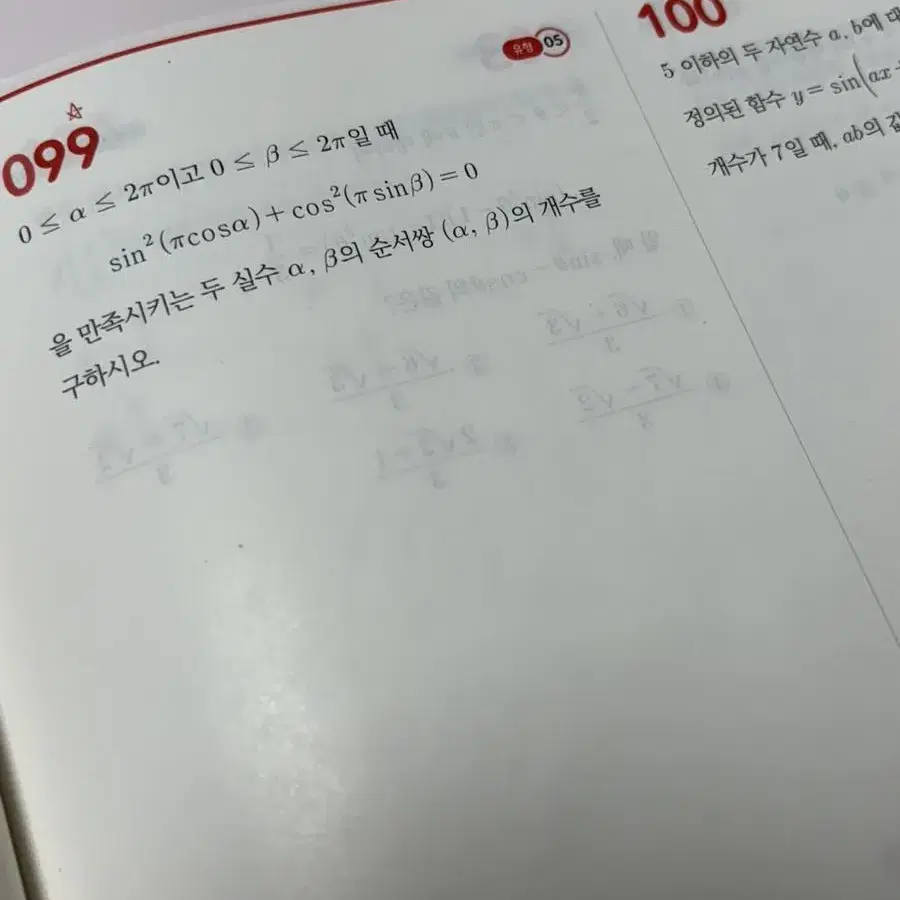 유형 05
099
0 ≤ α ≤ 2π이고 0 ≤ β ≤ 2π일 때
sin²(πcosα)+cos²(π sinβ)=0
을 만족시키는 두 실수 α, β의 순서쌍 (α, β)의 개수를
구하시오.
100
5 이하의 두 자연수 a, b에
정의된 함수 y=sin(ax
개수가 7일 때, ab의